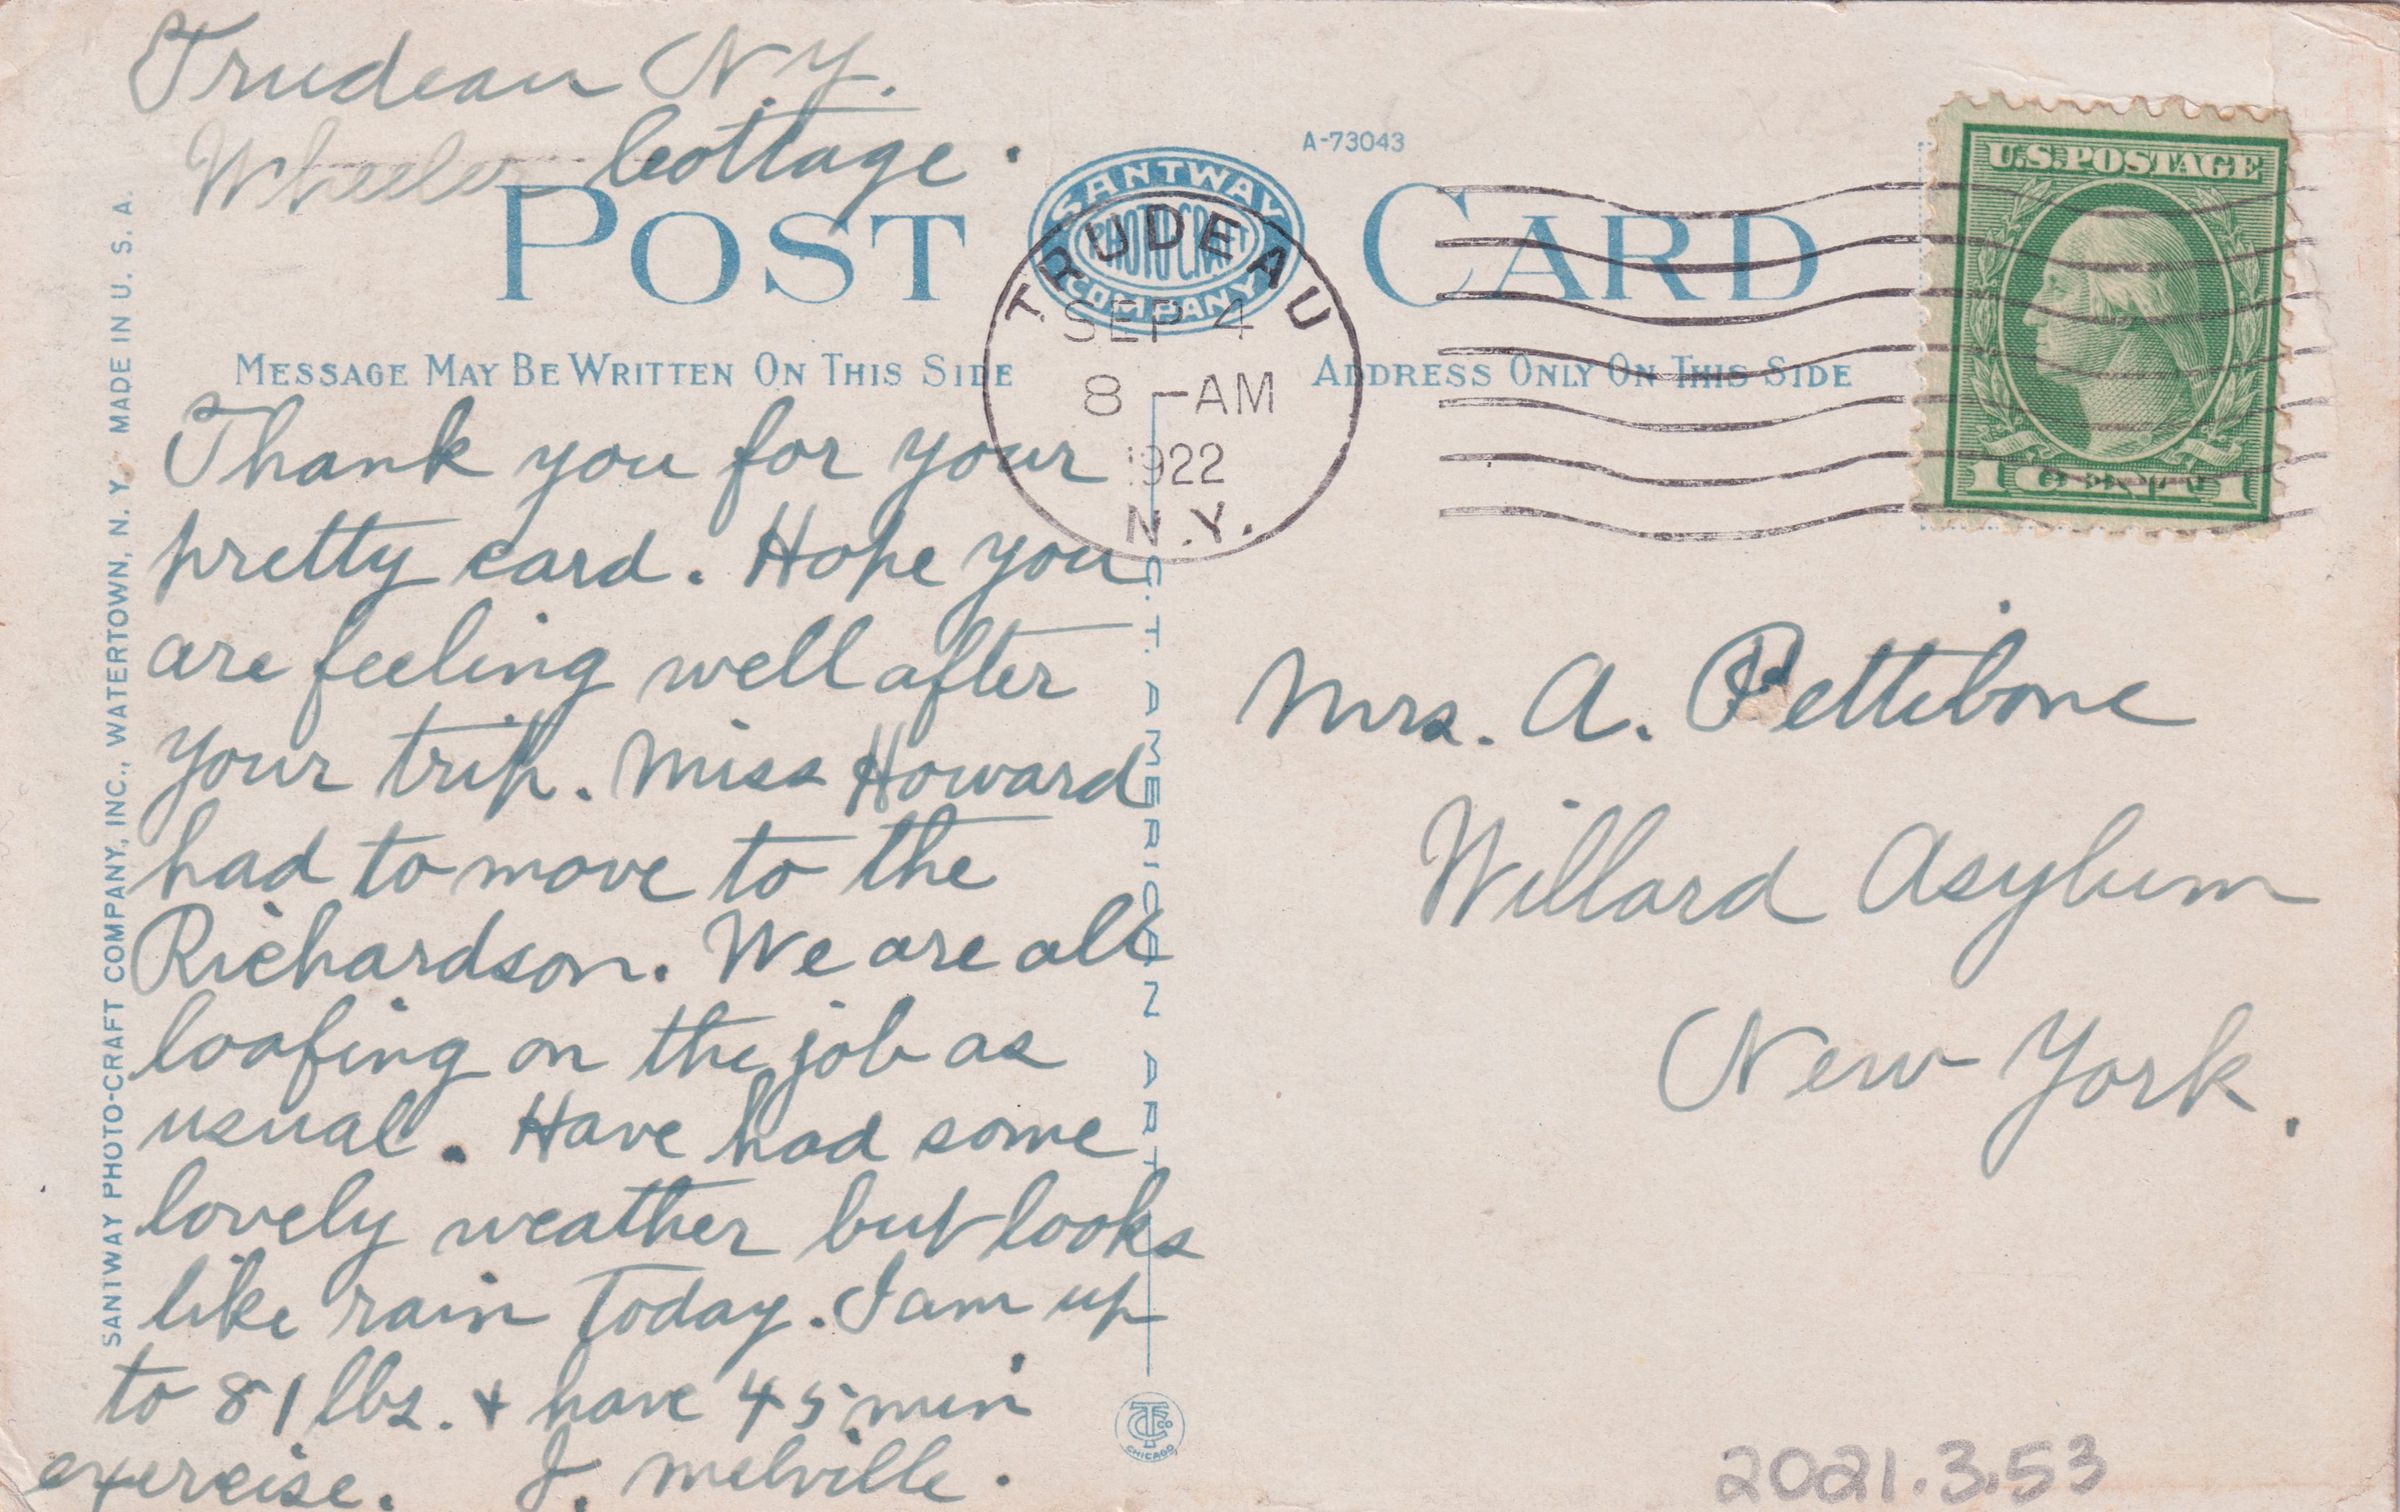 Trudeau N.Y.
Wheeler Cottage.
A-73043
POST CARD
SANTWAY
PHOTO-CRAFT
COMPANY
TRUDEAU
SEP 4
8 -AM
1922
N.Y.
U.S.POSTAGE
1 CENT 1
MESSAGE MAY BE WRITTEN ON THIS SIDE
ADDRESS ONLY ON THIS SIDE
Thank you for your
pretty card. Hope you
are feeling well after
your trip. Miss Howard
had to move to the
Richardson. We are all
loafing on the job as
usual. Have had some
lovely weather but looks
like rain today. I am up
to 81 lbs. + have 45 min
exercise. J. Melville.
SANTWAY PHOTO-CRAFT COMPANY, INC., WATERTOWN, N. Y. MADE IN U. S. A.
C.T. AMERICAN ART
CHICAGO
Mrs. A. Pettibone
Willard Asylum
New York.
2021.3.53